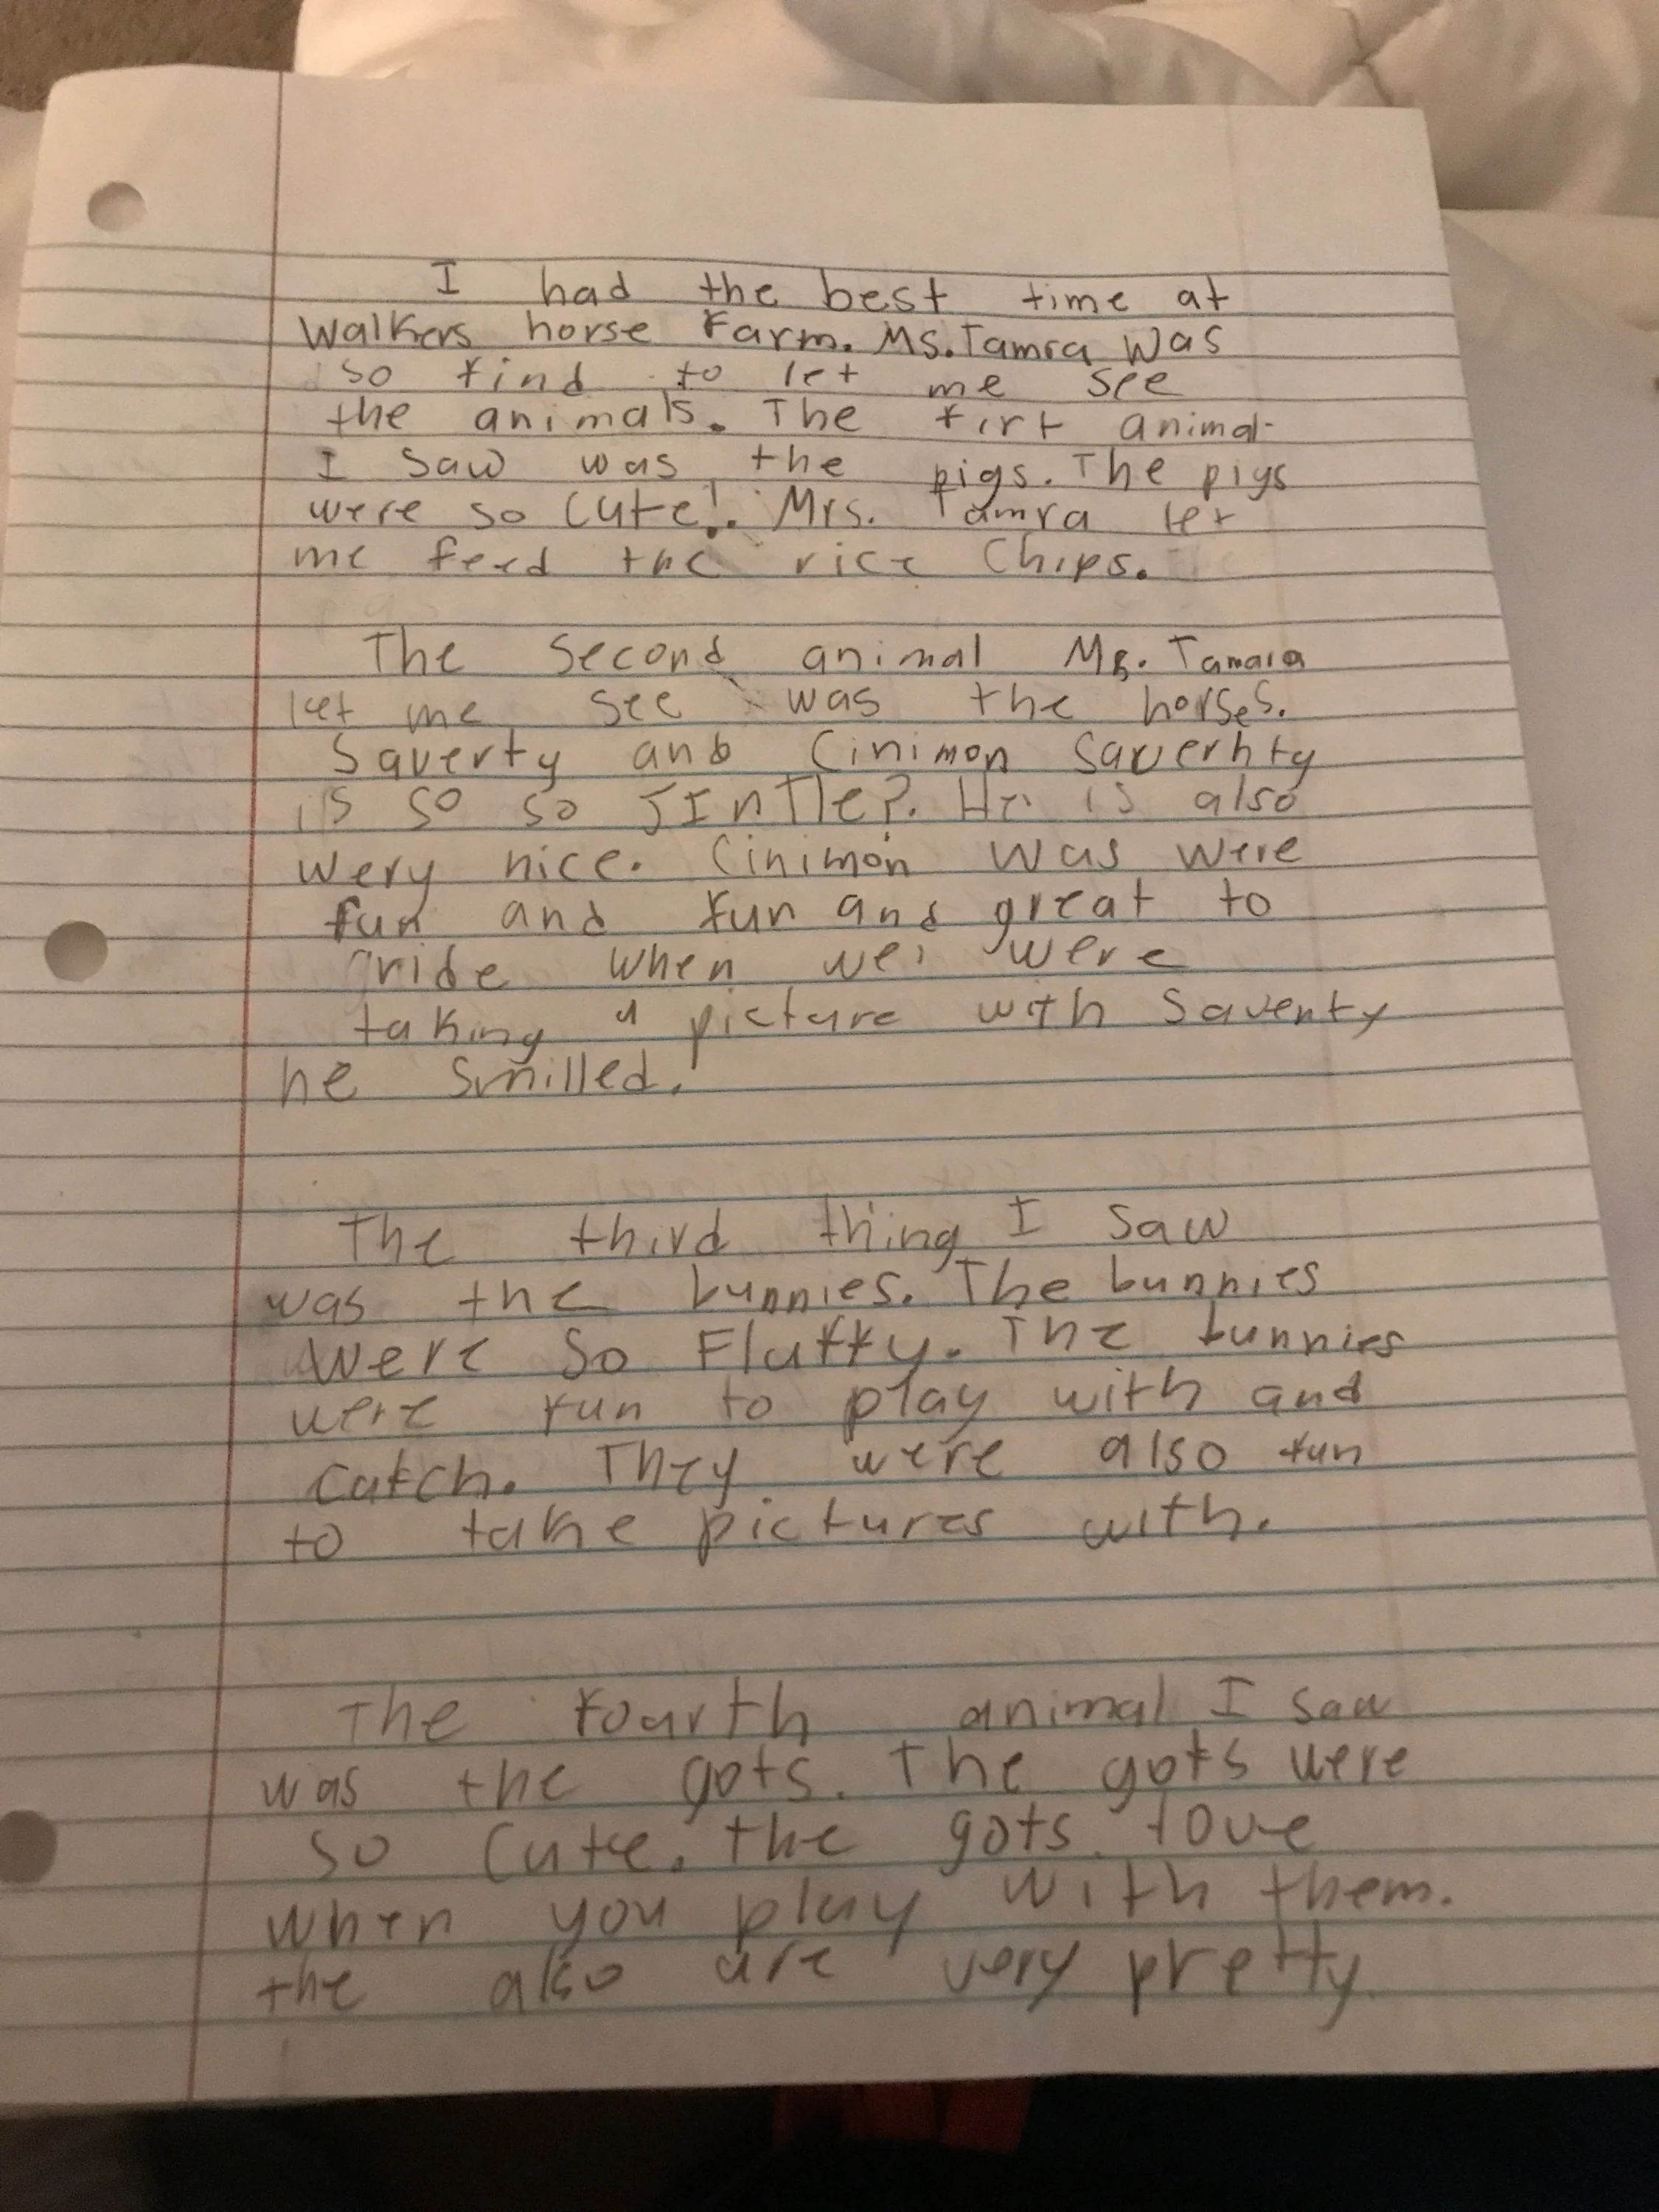 I had the best time at
Walkers horse Farm. Ms. Tamra was
so kind to let me see
the animals. The firt animal
I saw was the pigs. The pigs
were so cute!. Mrs. Tamra let
me feed the rice Chips.
The Second animal Ms. Tamara
let me see was the horses.
Saverty and Cinimon Saverhty
is so so JIntle?. He is also
wery nice. Cinimon was were
fun and fun and great to
ride when we were
taking a picture with Saventy
he smilled.
The third thing I saw
was the bunnies. The bunnies
were So Fluffy. The bunnies
were fun to play with and
catch. They were also fun
to take pictures with.
The fourth animal I saw
was the gots. The gots were
so cute. the gots love
when you play with them.
the also are very pretty